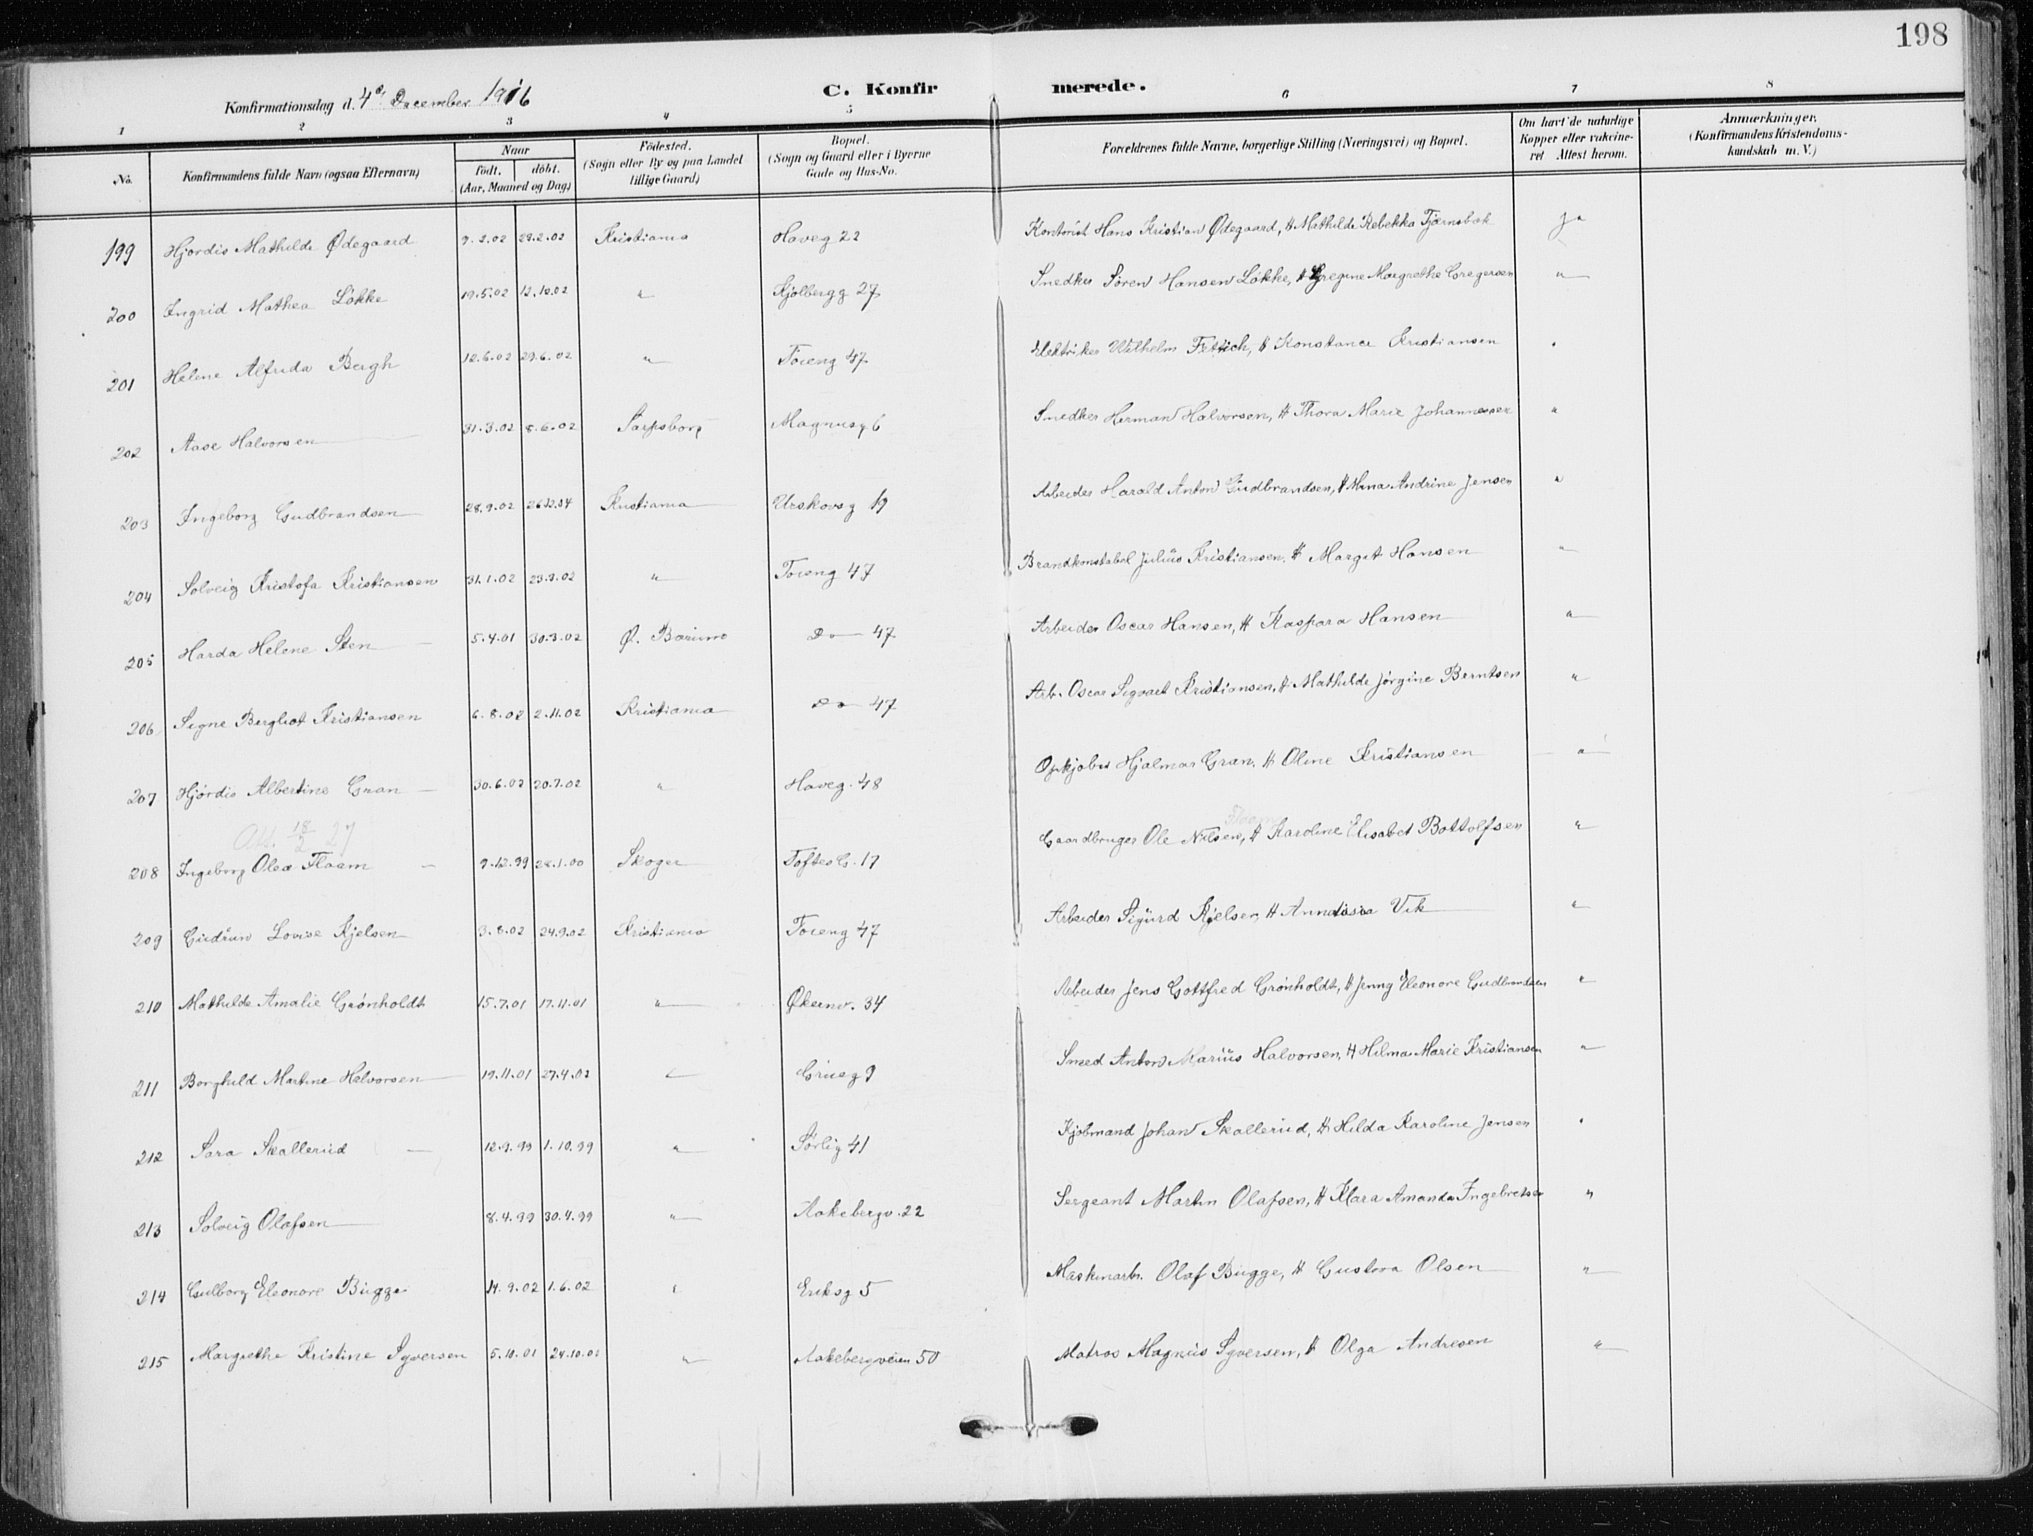 198
Konfirmationsdag d. 4de December 1916
C. Konfirmerede.
1 2 3 4 5 6 7 8
No. Konfirmandens fulde Navn (ogsaa Efternavn) Naar født, døbt. (Aar, Maaned og Dag) Fødested. (Sogn eller By og paa Landet tillige Gaard) Bopæl. (Sogn og Gaard eller i Byerne Gade og Hus-No. Forældrenes fulde Navne, borgerlige Stilling (Næringsvei) og Bopæl. Om havt de naturlige Kopper eller vakcineret Attest herom. Anmærkninger. (Konfirmandens Kristendomskundskab m. V.)
199 Hjørdis Mathilde Ødegaard 9.2.02 29.2.02 Kristiania Haveg 22 Kontorist Hans Kristian Ødegaard, H Mathilde Rebekka Tjærnsbæk Ja
200 Ingrid Mathea Løkke 19.5.02 12.10.02 " Kjølbergg 27 Snedker Søren Hansen Løkke, H Gregine Margrethe Gregersen "
201 Helene Alfrida Bergh 12.6.02 29.6.02 " Tøieng 47 Elektriker Wilhelm H Konstance Kristiansen "
202 Aase Halvorsen 31.3.02 8.6.02 Sarpsborg Magnusg 6 Snedker Herman Halvorsen, H Thora Marie Johannessen "
203 Ingeborg Gudbrandsen 28.9.02 Kristiania Urskovsg 19 Arbeider Harald Anton Gudbrandsen, H Andrine Jensen "
204 Solveig Kristofa Kristiansen 31.1.02 23.3.02 " Tøieng 47 Brandkonstabel Julius Kristiansen, H Margit Hansen "
205 Harda Helene Sten 5.4.01 30.3.02 Ø. Bærum Do 47 Arbeider Oscar Hansen, H Kaspara Hansen "
206 Signe Bergliot Kristiansen 6.8.02 2.11.02 Kristiania Do 47 Arb. Oscar Sigvart Kristiansen, H Mathilde Jørgine Berntsen "
207 Hjørdis Albertine Gran 30.6.02 20.7.02 " Haveg. 48 Opkjøber Hjalmar Gran, H Oline Kristiansen "
Att. 18/2 27
208 Ingeborg Olea Flaam 9.12.99 28.1.00 Skoger Toftes G. 17 Gaardbruger Ole Nilsen, Flaam H Karoline Elisabet Bottolfsen "
209 Gudrun Lovise Kjelsen 3.8.02 24.9.02 Kristiania Tøieng 47 Arbeider Sigurd Kjelsen, H Vik "
210 Mathilde Amalie Grønholdt 15.7.01 17.11.01 " Økernv. 34 Arbeider Jens Gottfred Grønholdt, H Jenny Eleonore Gudbrandsen "
211 Borghild Martine Halvorsen 19.11.01 27.4.02 " Grueg 9 Smed Anton Marius Halvorsen, H Hilma Marie Kristiansen "
212 Sara Skallerud 12.9.99 1.10.99 " Sørlig 41 Kjøbmand Johan Skallerud, H Hilda Karoline Jensen "
213 Solveig Olafsen 8.4.99 30.4.99 " Aakebergv. 22 Sergeant Martin Olafsen, H Klara Amanda Ingebretsen "
214 Gulborg Eleonore Bugge 14.9.02 1.6.02 " Eriksg 5 Maskinarb. Olaf Bugge, H Gustava Olsen "
215 Margrethe Kristine Syversen 5.10.01 24.10.01 " Aakebergveien 50 Matros Magnus Syversen, H Olga Andresen "